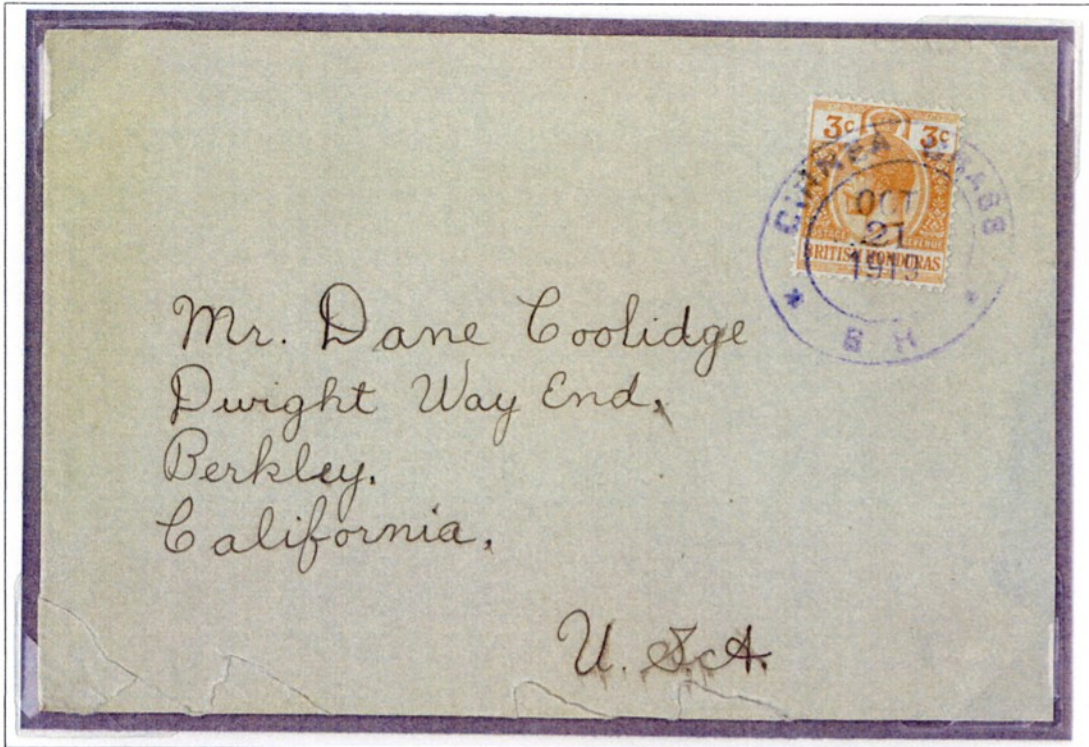 3c 3c
POSTAGE REVENUE
BRITISH HONDURAS
GUINEA GRASS
OCT
21
1919
B H
Mr. Dane Coolidge
Dwight Way End,
Berkley.
California.
U. S. A.